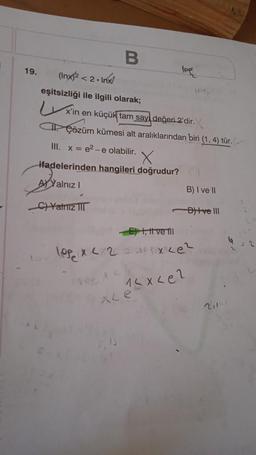 B
19. (lnx)² < 2 • lnx
eşitsizliği ile ilgili olarak;
I. x'in en küçük tam sayı değeri 2'dir.
II. Çözüm kümesi alt aralıklarından biri (1, 4) tür.
III. x = e² – e olabilir.
ifadelerinden hangileri doğrudur?
A) Yalnız I
B) I ve II
C) Yalnız III
D) I ve III
E) I, II ve III
logₑ x < 2
x < e²
1 < x < e²
x < e